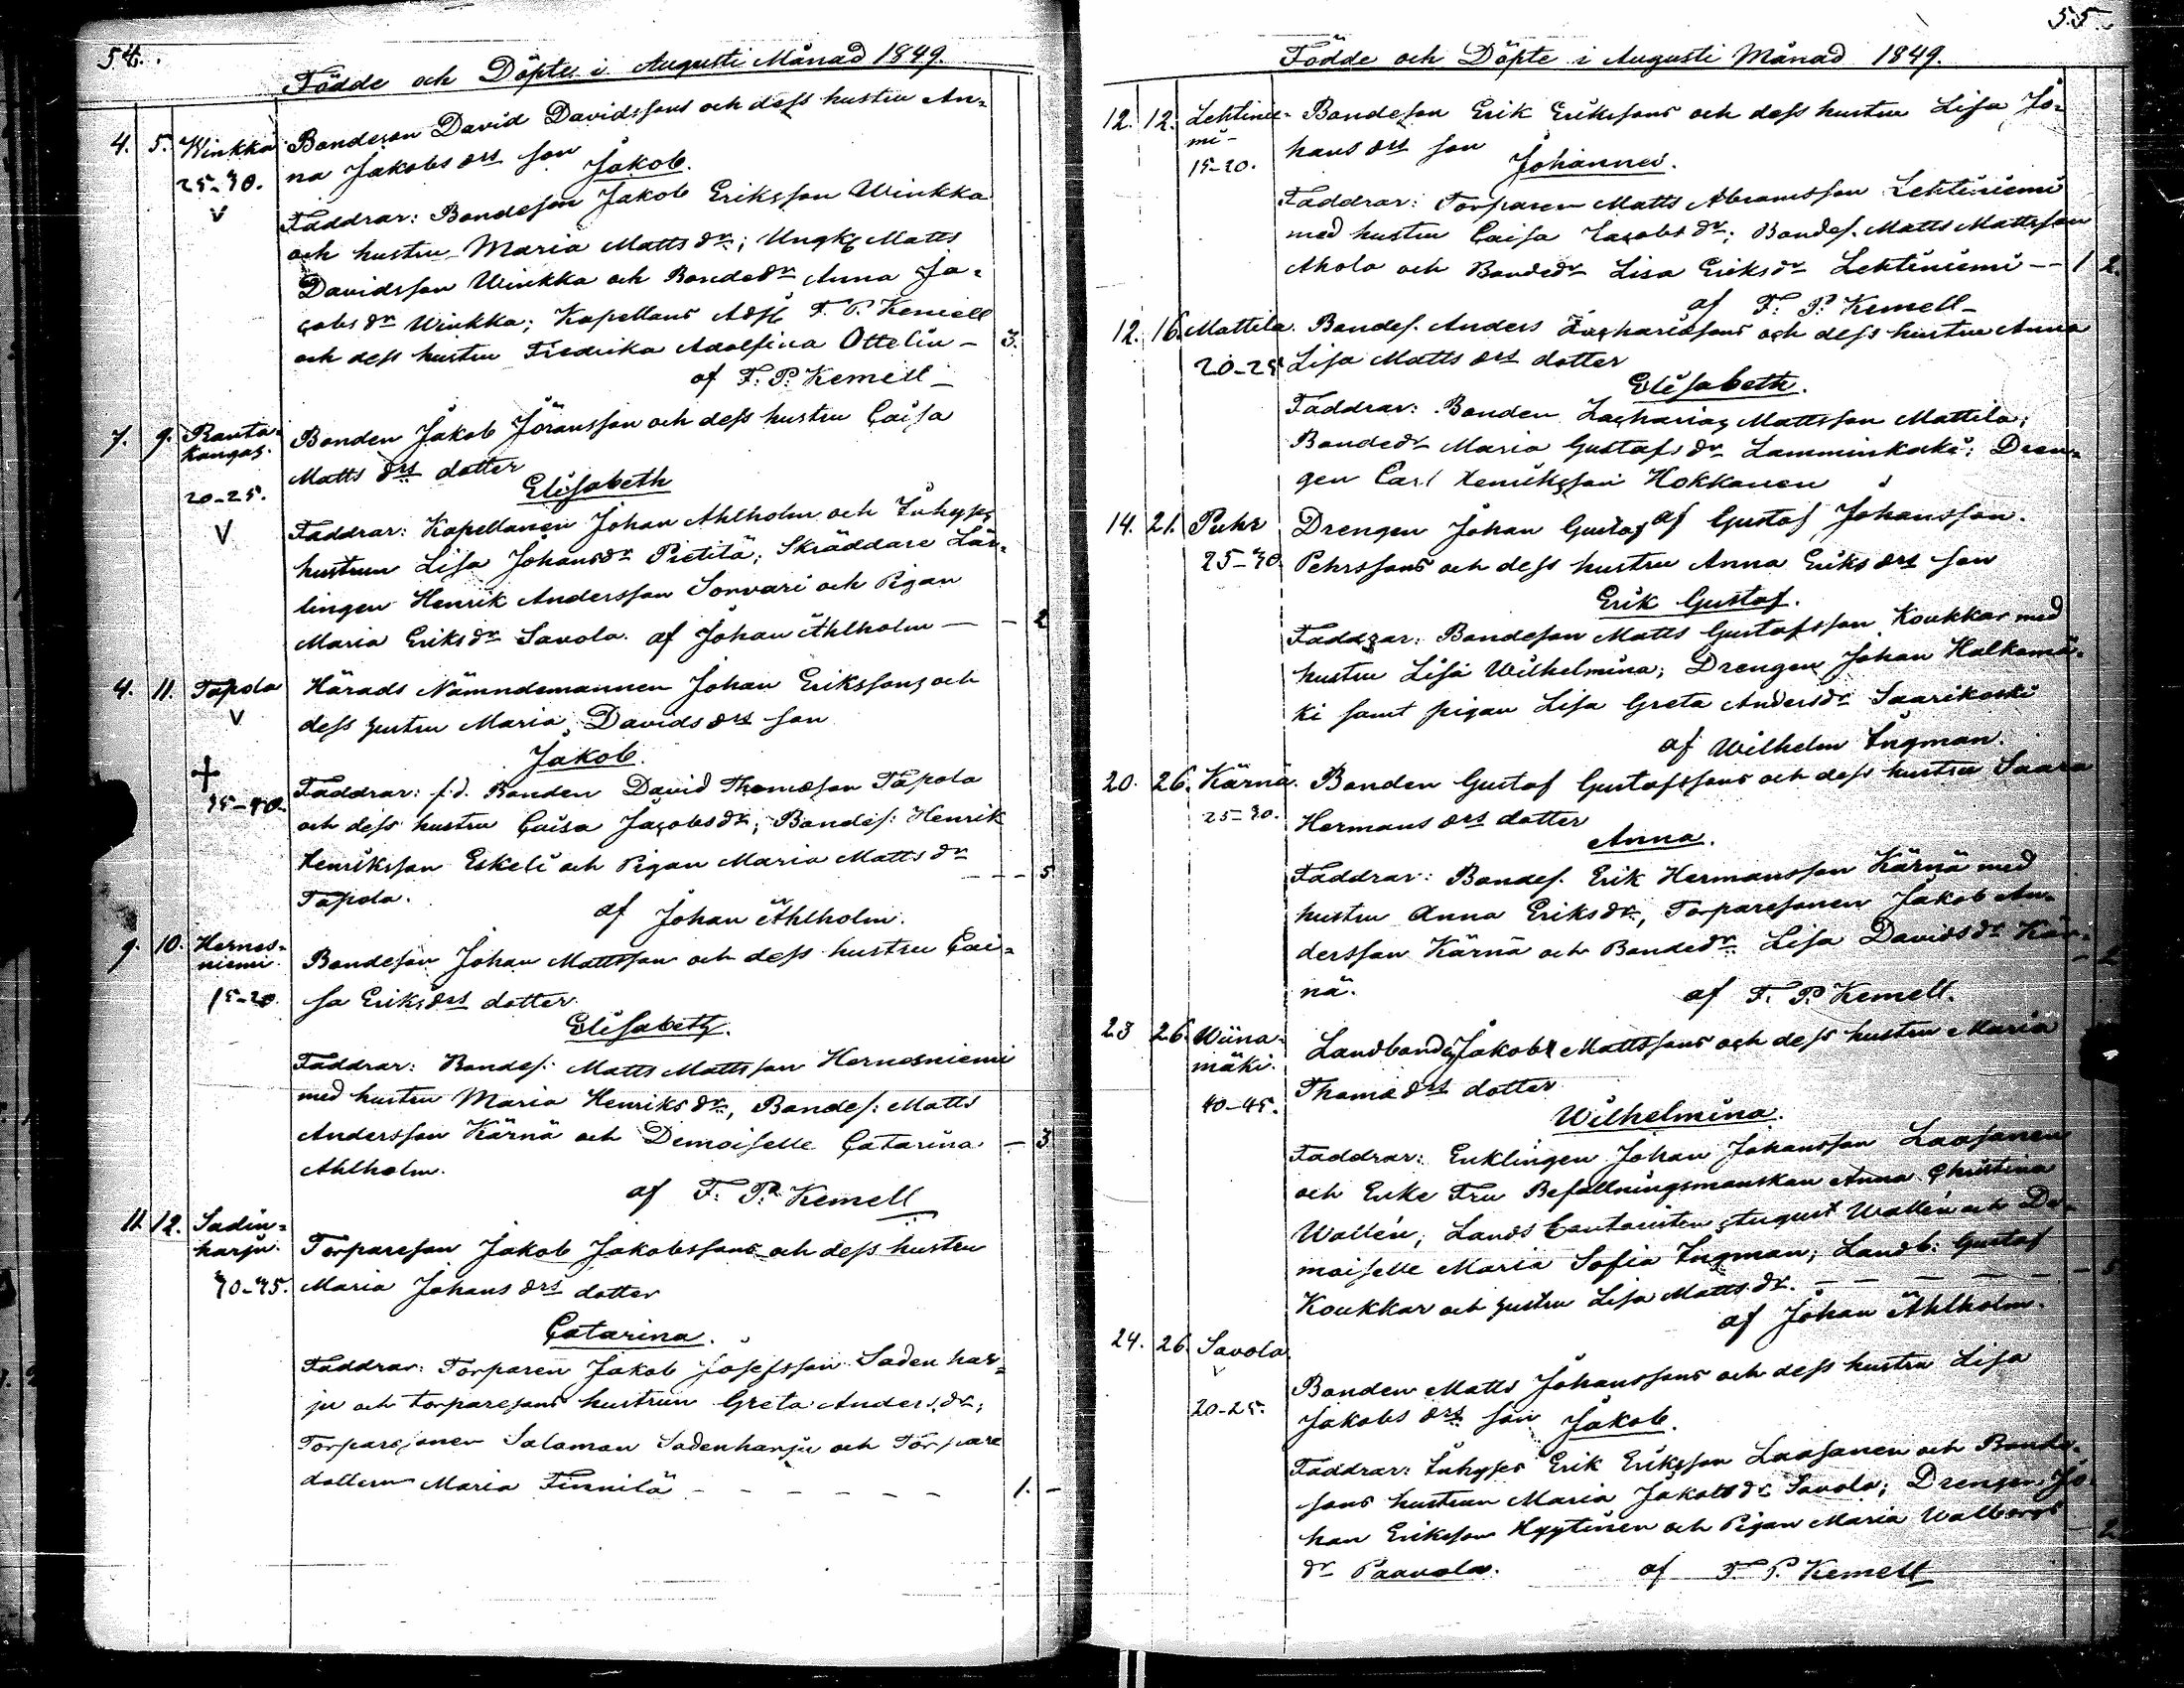 54.
Födde och Döpte i Augusti Månad 1849.
4. 5. Winkka Bondeson David Davidssons och dess hustru An=
25-30. na Jakobs drs son
V Jakob.
Faddrar: Bondeson Jakob Eriksson Winkka
och hustru Maria Matts dr; Ungk. Matts
Davidsson Winkka och Bondedr Anna Ja=
cobs dr Winkka; Kapellans Adj. F. P. Kemell
och dess hustru Fredrika Adolfina Ottelin - 3.
af F. P. Kemell
7. 9. Ranta= Bonden Jakob Göransson och dess hustru Caisa
kangas. Matts drs dotter
20-25. Elisabeth
V Faddrar: Kapellanen Johan Ahlholm och Inhyses
hustrun Lisa Johansdr Pietilä; Skräddare Lär=
lingen Henrik Andersson Sorvari och Pigan
Maria Eriksdr Savola. af Johan Ahlholm - - 2
4. 11. Tapola Härads Nämndemannen Johan Erikssons och
V dess hustru Maria Davids drs son
Jakob.
+ Faddrar: f.d. Bonden David Thomasson Tapola
35-40. och dess hustru Caisa Jacobsdr; Bondes: Henrik
Henriksson Eskeli och Pigan Maria Matts dr
Tapola. - - - 5
af Johan Ahlholm.
9. 10. Hernes= Bondeson Johan Mattsson och dess hustru Cai=
niemi
15-20. sa Eriks drs dotter
Elisabeth.
Faddrar: Bondes: Matts Mattsson Hernesniemi
med hustru Maria Henriks dr, Bondes: Matts
Andersson Kärnä och Demoiselle Catarina - 3
Ahlholm.
af F. P. Kemell
11. 12. Sadin= Torpareson Jakob Jakobssons och dess hustru
harju.
30-35. Maria Johans drs dotter
Catarina.
Faddrar: Torparen Jakob Josefsson Saden har=
ju och torparesons hustrun Greta Anders dr;
Torparesonen Salomon Sadenharju och Torpare
dottern Maria Finnilä - - - - - - 1. -
55.
Födde och Döpte i Augusti Månad 1849.
12. 12. Lehtinie= Bondeson Erik Erikssons och dess hustru Lisa Jo=
mi-
15-20. hans drs son
Johannes.
Faddrar: Torparen Matts Abramsson Lehtiniemi
med hustru Caisa Jacobsdr; Bondes. Matts Mattsson
Ahola och Bondedr Lisa Eriksdr Lehtiniemi - - 1 2.
af F. P. Kemell -
12. 16. Mattila. Bondes. Anders Zachariassons och dess hustru Anna
20-25 Lisa Matts drs dotter
Elisabeth.
Faddrar: Bonden Zacharias Mattsson Mattila;
Bondedr Maria Gustafs dr Lamminkoki; Dren=
gen Carl Henriksson Hokkanen
af Gustaf Johansson.
14. 21. Puhr Drengen Johan Gustaf
25-30. Pehrssons och dess hustru Anna Eriks drs son
Erik Gustaf.
Faddrar: Bondeson Matts Gustafsson Koukkar med
hustru Lisa Wilhelmina; Drengen Johan Halkomä=
ki samt pigan Lisa Greta Andersdr Saarikoski
af Wilhelm Ingman.
20. 26. Kärnä. Bonden Gustaf Gustafssons och dess hustru Saara
25-30. Hermans drs dotter
Anna.
Faddrar: Bondes. Erik Hermansson Kärnä med
hustru Anna Eriksdr, Torparesonen Jakob An=
dersson Kärnä och Bondedr Lisa Davidsdr Kär=
nä.
af F. P. Kemell.
23 26. Wiina= Landbonde Jakob Mattssons och dess hustru Maria
mäki. Thomædrs dotter
40-45. Wilhelmina.
Faddrar: Enklingen Johan Johansson Laasanen
och Enke Fru Befallningsmanskan Anna Christina
Wallén, Lands Cantoristen August Wallén och De=
moiselle Maria Sofia Ingman; Landb: Gustaf
Koukkar och hustru Lisa Mattsdr. - - - - - 5
af Johan Ahlholm.
24. 26. Savola.
Bonden Matts Johanssons och dess hustru Lisa
20-25. Jakobs drs son Jakob.
Faddrar: Inhyses Erik Eriksson Laasanen och Bonde=
sons hustrun Maria Jakobsdr Savola; Drengen Jo=
han Eriksson Hyytinen och Pigan Maria Walborgs
dr Paavola. - 2
af F. P. Kemell